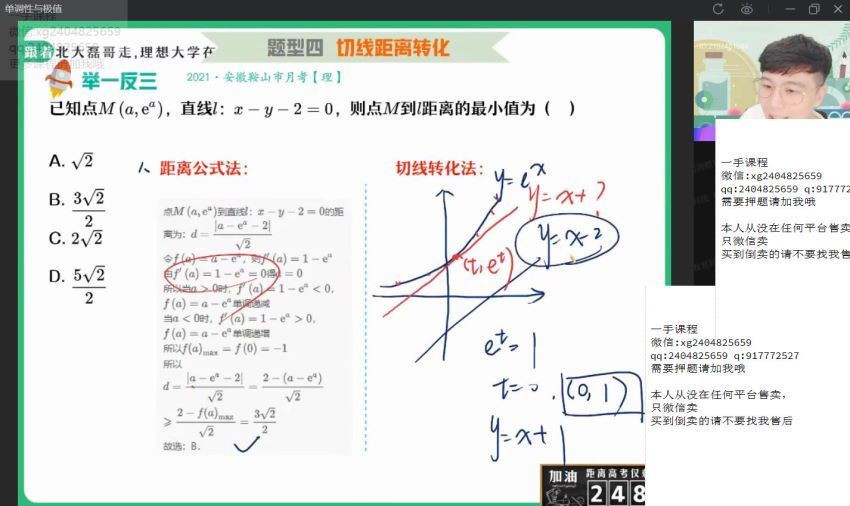 单调性与极值
一手课程
微信:xg2404825659
跟着北大磊哥走,理想大学在
题型四 切线距离转化
举一反三
2021·安徽鞍山市月考【理】
已知点M(a,eᵃ),直线l:x-y-2=0,则点M到l距离的最小值为( )
A. √2
B. 3√2/2
C. 2√2
D. 5√2/2
距离公式法:
点M(a,eᵃ)到直线l:x-y-2=0的距
离为:d=|a-eᵃ-2|/√2
令f(a)=a-eᵃ,则f′(a)=1-eᵃ
由f′(a)=1-eᵃ=0得a=0
所以当a>0时,f′(a)=1-eᵃ<0,
f(a)=a-eᵃ单调递减
当a<0时,f′(a)=1-eᵃ>0,
f(a)=a-eᵃ单调递增
所以f(a)max=f(0)=-1
所以
d=|a-eᵃ-2|/√2=2-(a-eᵃ)/√2
⩾2-f(a)max/√2=3√2/2
故选:B.
切线转化法:
y=eˣ
y=x+?
y=x-2
(t,eᵗ)
eᵗ=1
t=0. (0,1)
y=x+1
加油
距离高考仅
248
一手课程
微信:xg2404825659
qq:2404825659 q:91777
需要押题请加我哦
本人从没在任何平台售卖
只微信卖
买到倒卖的请不要找我售
一手课程
微信:xg2404825659
qq:2404825659 q:917772527
需要押题请加我哦
本人从没在任何平台售卖,
只微信卖
买到倒卖的请不要找我售后